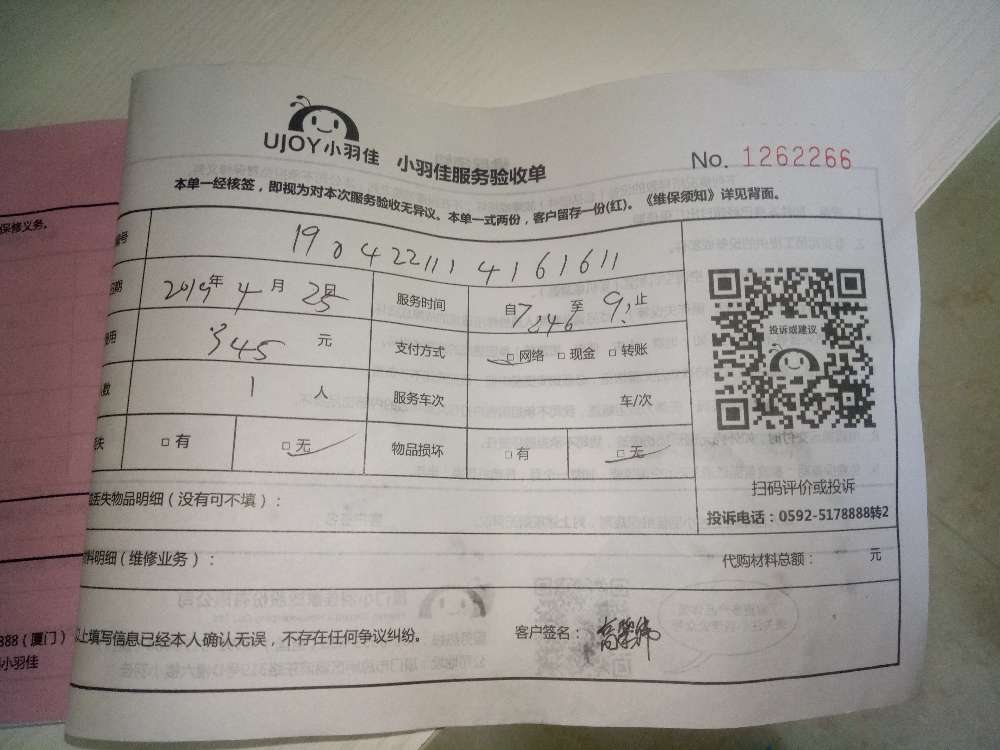 UJOY小羽佳 小羽佳服务验收单
No. 1262266
本单一经核签，即视为对本次服务验收无异议。本单一式两份，客户留存一份(红)。《维保须知》详见背面。
号 1904221114161611
期 2019年 4 月 25 服务时间 自 至 9: 止
用 345 元 支付方式 □ 网络 □ 现金 □ 转账
人数 1 人 服务车次 车/次
失 □ 有 □ 无 物品损坏 □ 有 □ 无
投诉或建议
扫码评价或投诉
投诉电话：0592-5178888转2
丢失物品明细（没有可不填）：
料明细（维修业务）： 代购材料总额： 元
以上填写信息已经本人确认无误，不存在任何争议纠纷。 客户签名：
保修义务。
888（厦门）
小羽佳